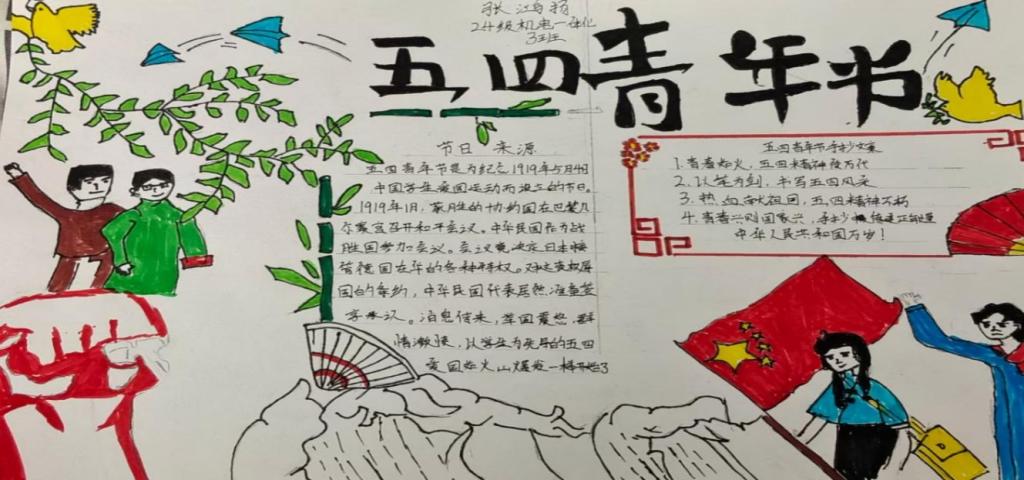 张鸿扬
24级机电一体化
3班
五四青年书
节日来源
五四青年节是为纪念1919年5月4日
中国学生爱国运动而设立的节日。
1919年1月,获胜的协约国在巴黎凡
尔赛宫召开和平会议。中华民国作为战
胜国参加会议。会议竟决定日本接
管德国在华的各种特权。对这丧权辱
国的条约,中华民国代表居然准备签
字承认。消息传来,举国震怒,群
情激愤,以学生为先导的五四
爱国火山爆发一样开始了
五四青年节手抄文案
1.青春如火,五四精神传万代
2.以笔为剑,书写五四风采
3.热血献祖国,五四精神万杨
4.青春兴则国家兴,手抄
中华人民共和国万岁!